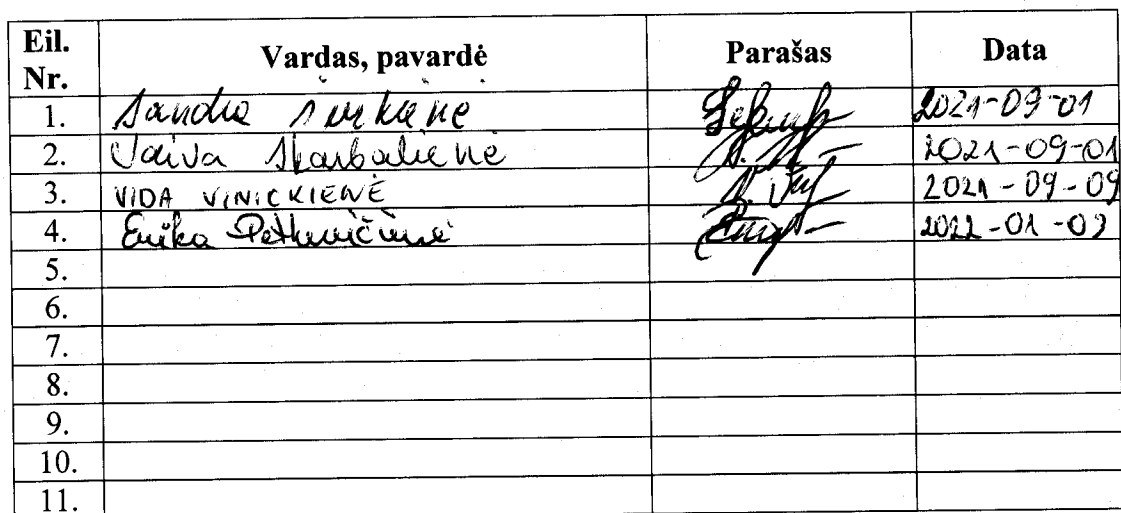 Eil. Nr. Vardas, pavardė Parašas Data
1. Sandra 2021-09-01
2. Vaiva Skarbalienė 2021-09-01
3. VIDA VINICKIENĖ 2021-09-09
4. Erika Petkevičienė 2022-01-03
5.
6.
7.
8.
9.
10.
11.